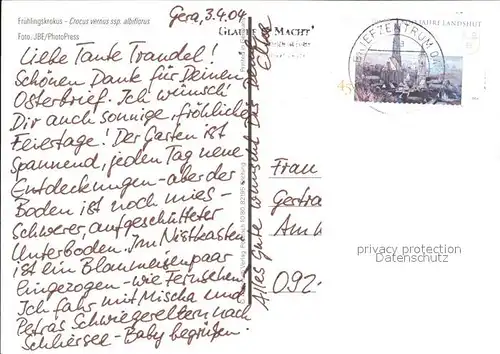 Frühlingskrokus - Crocus vernus ssp. albiflorus
Foto: JBE/PhotoPress
Gera, 3.4.04
Liebe Tante Traudel!
Schönen Dank für Deinen
Osterbrief. Ich wünsch'
Dir auch sonnige, fröhliche
Feiertage! Der Garten ist
spannend, jeden Tag neue
Entdeckungen - aber der
Boden ist noch mies -
Schwerer, aufgeschütteter
Unterboden. Im Nistkasten
ist ein Blaumeisenpaar
eingezogen - wie Fernsehen.
Ich fahr mit Mischa und
Petras Schwiegereltern nach
Schliersee - Baby begrüßen.
Alles Gute wünscht Dir Deine
MACHT
BRIEFZENTRUM
JAHRE LANDSHUT
45
Frau
Gertra
Am
092
privacy protection
Datenschutz